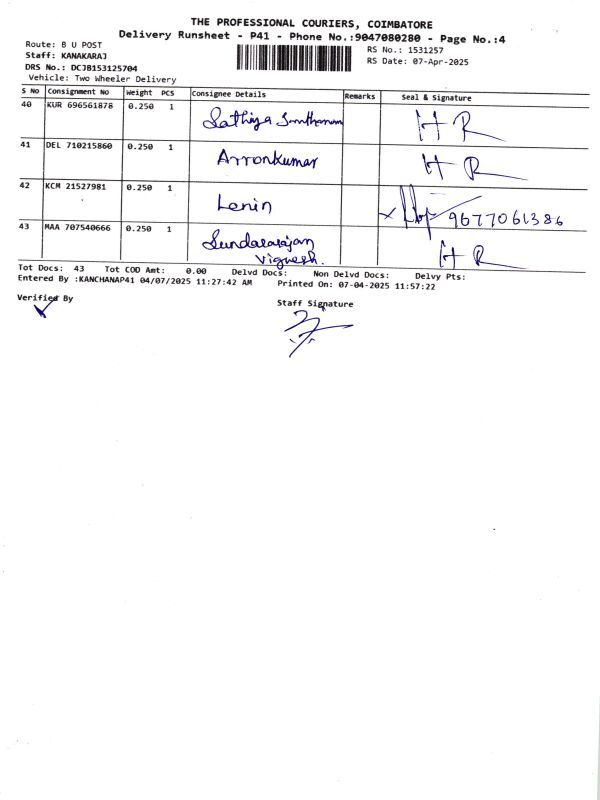 THE PROFESSIONAL COURIERS, COIMBATORE
Delivery Runsheet - P41 - Phone No.:9047080280 - Page No.:4
Route: B U POST
RS No.: 1531257
Staff: KANAKARAJ
RS Date: 07-Apr-2025
DRS No.: DCJB153125704
Vehicle: Two Wheeler Delivery
S No Consignment No Weight PCS Consignee Details Remarks Seal & Signature
40 KUR 696561878 0.250 1 Sathiya Santhanam H R
41 DEL 710215860 0.250 1 Arronkumar H R
42 KCM 21527981 0.250 1 Lenin x 9677061386
43 MAA 707540666 0.250 1 Sundararajan H R
Vignesh.
Tot Docs: 43 Tot COD Amt: 0.00 Delvd Docs: Non Delvd Docs: Delvy Pts:
Entered By :KANCHANAP41 04/07/2025 11:27:42 AM Printed On: 07-04-2025 11:57:22
Verified By
Staff Signature